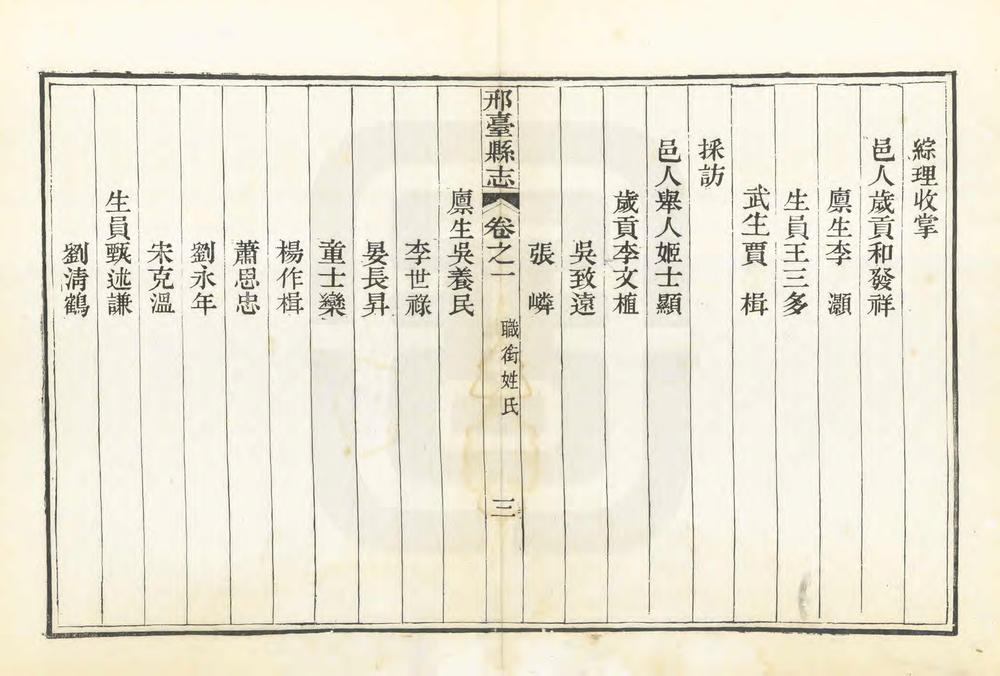 綜理收掌
邑人歲貢和發祥
廪生李　灝
生員王三多
武生賈　楫
採訪
邑人舉人姬士顯
歲貢李文植
吳致遠
張　嶙
邢臺縣志　卷之一　職銜姓氏　三
廪生吳養民
李世祿
晏長昇
童士欒
楊作楫
蕭思忠
劉永年
宋克溫
生員甄述謙
劉清鶴